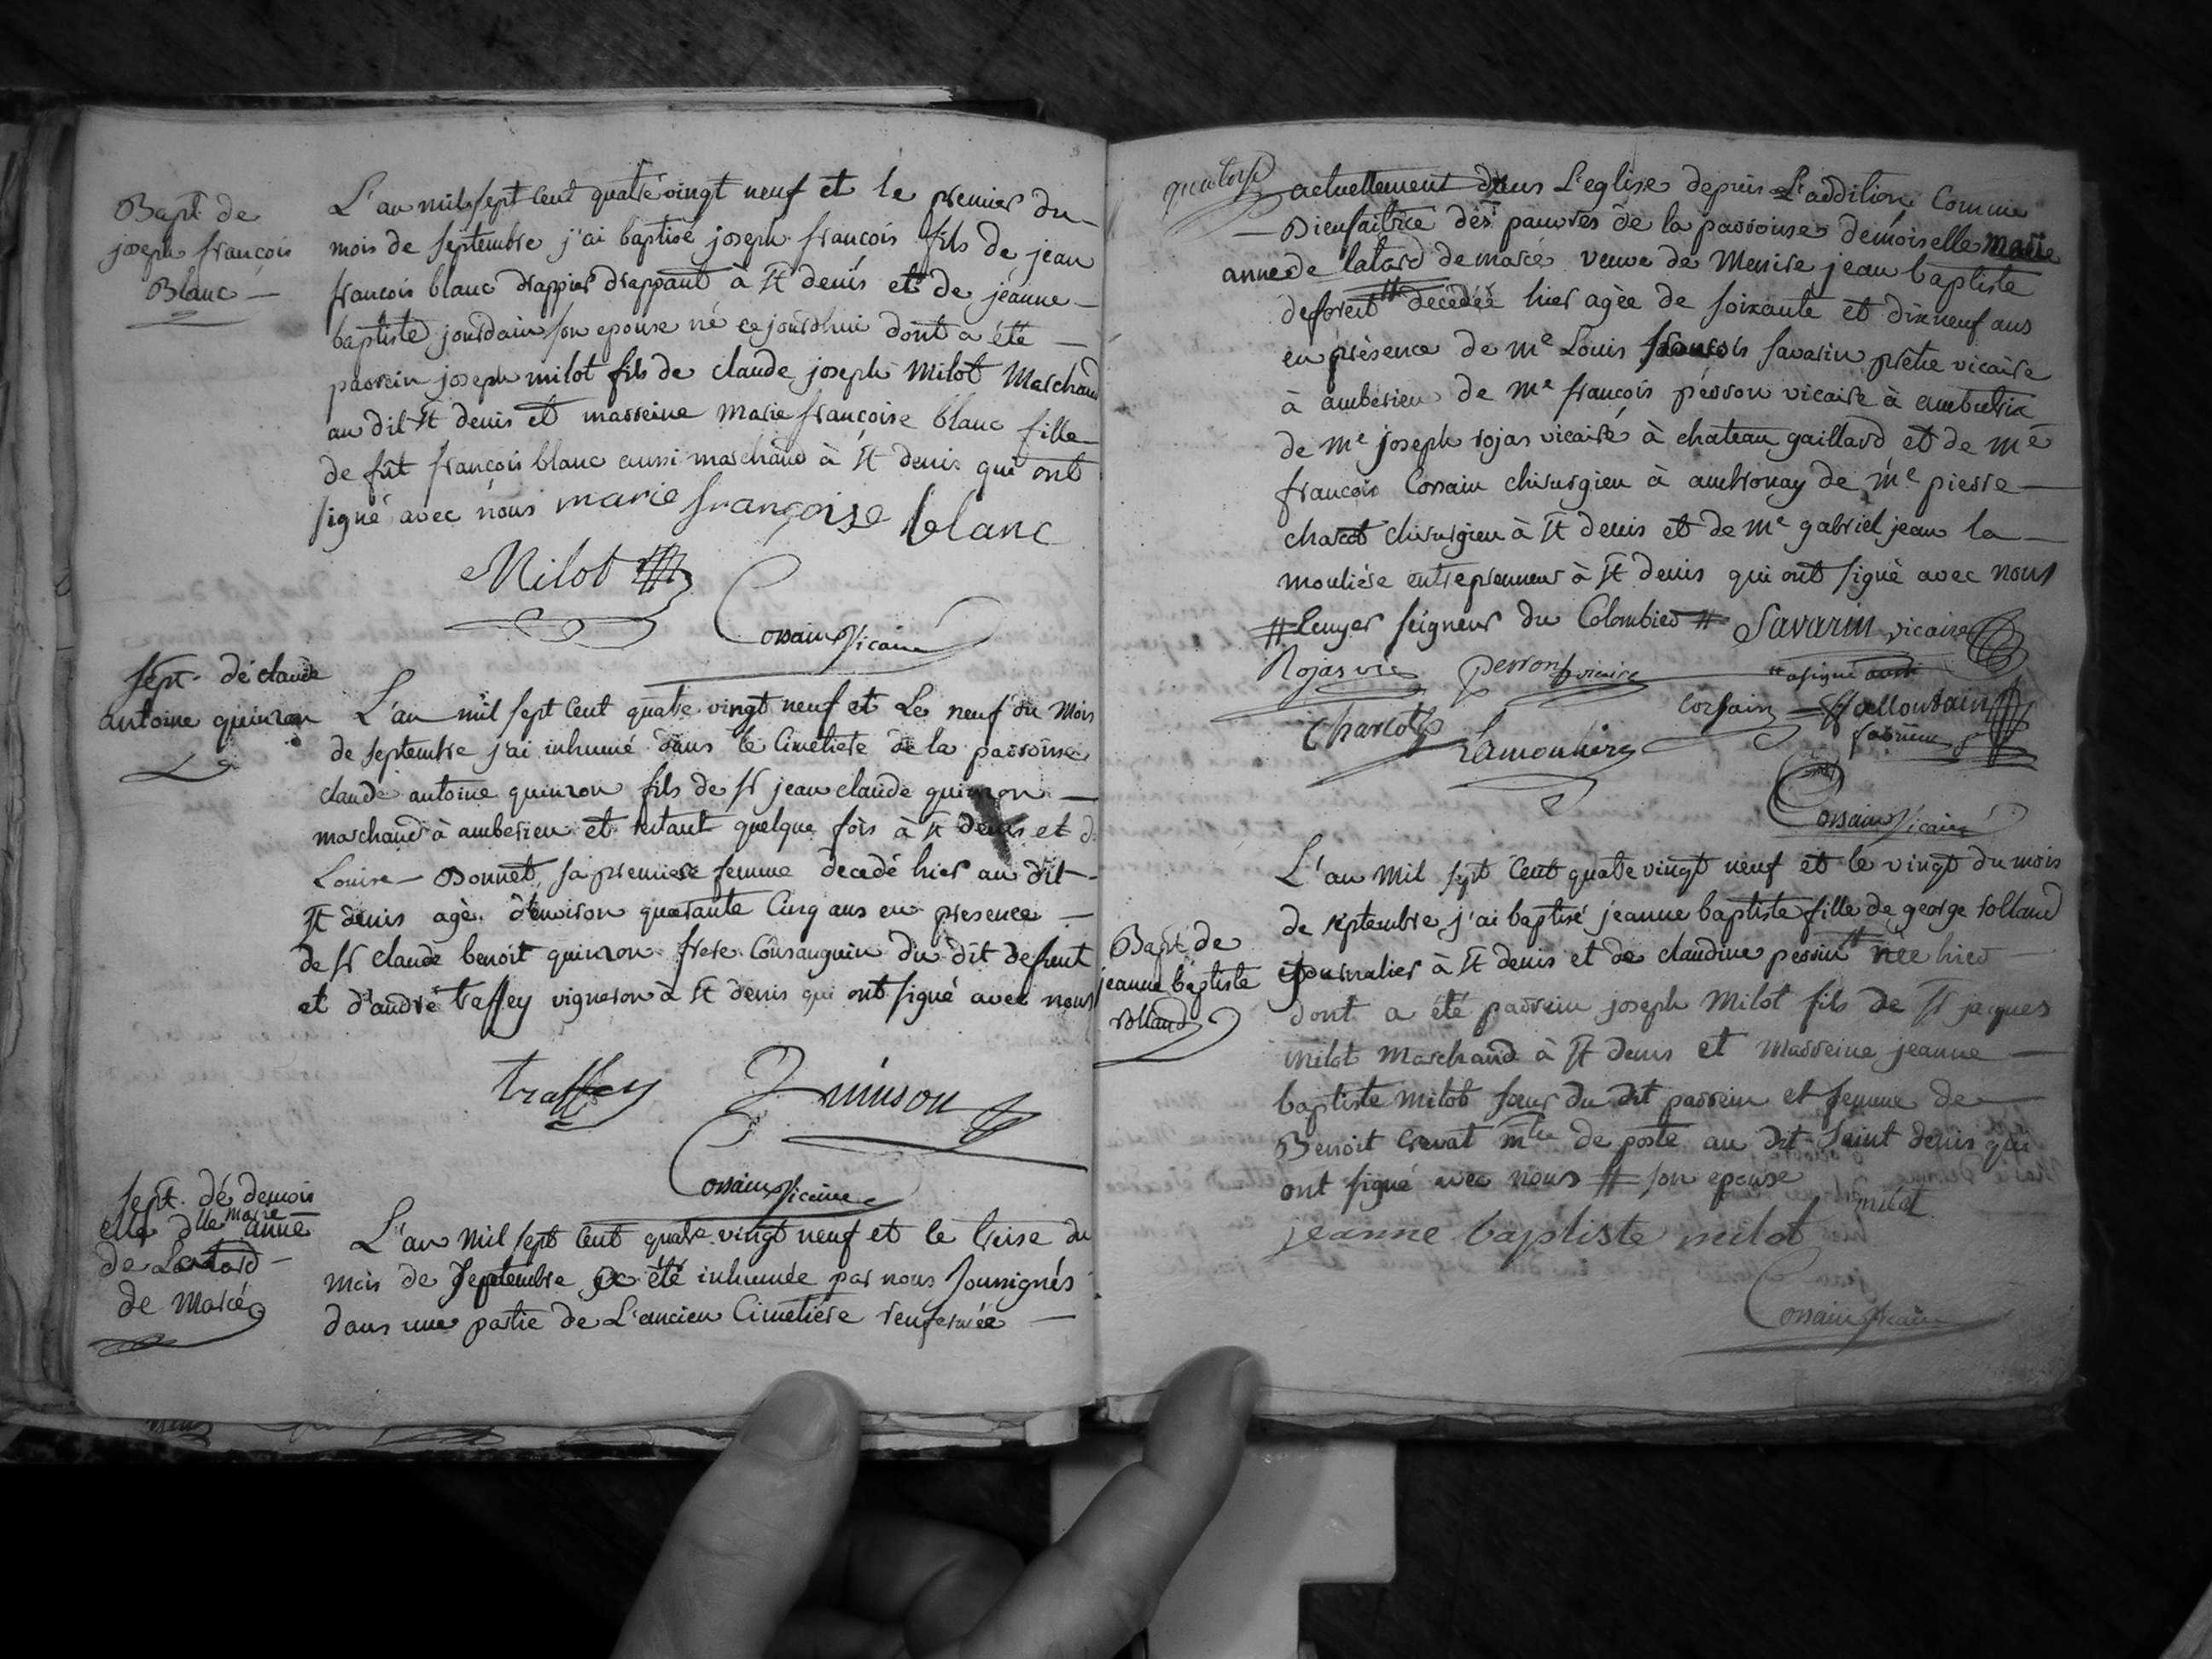 Bapt. de
joseph françois
Blanc
L'an mil sept cent quatre vingt neuf et le premier du
mois de septembre j'ai baptisé joseph françois fils de jean
francois blanc drappier drappant à St denis et de jeanne
baptiste jourdain son epouse né ce jourdhui dont a été
parrein joseph milot fils de claude joseph Milot Marchand
au dit St denis et marreine marie françoise blanc fille
de fût françois blanc aussi marchand à St denis qui ont
signé avec nous marie françoise blanc
Milot
Cossain vicaire
sept. de claude
antoine quinson
L'an mil sept cent quatre vingt neuf et Le neuf du Mois
de septembre j'ai inhumé dans le Cimetiere de la parroisse
claude antoine quinson fils de Sr jean claude quinson
marchand à amberieu et restant quelque fois à St denis et d
Louise Bonnet, sa premiere femme decedé hier au dit
St denis agé d'environ quarante Cinq ans en presence
de Sr claude benoit quinson frere Consanguin du dit defunt
et d'andré traffey vigneron à St denis qui ont signé avec nous
traffey Quinson
Cossain vicaire
sept. de demois
elle dlle marie anne
de Latard
de marcé
L'an Mil sept Cent quatre vingt neuf et le treise du
mois de Septembre a été inhumée par nous soussignés
dans une partie de L'ancien Cimetiere renfermée
quatorse
actuellement dans L'eglise depuis L'addition Comme
Bienfaitrice des pauvres de la parroisse demoiselle Marie
anne de latard de marcé veuve de Messire jean baptiste
deforeit # decedée hier agée de soixante et dixneuf ans
en présence de me Louis françois savarin prêtre vicaire
à amberieu de me françois perron vicaire à ambutrix
de me joseph rojas vicaire à chateau gaillard et de me
françois Corsain chirurgien à ambronay de me pierre
charcot chirurgien à St denis et de me gabriel jean la
mouliére entreprenneur à St denis qui ont signé avec nous
# Ecuyer seigneur du Colombier # Savarin vicaire
Rojas vic perron vicaire a signé aussi
Charcot Lamouliere Corsain
Cossain vicaire
Bapt. de
jeanne baptiste
rolland
L'an mil sept Cent quatre vingt neuf et le vingt du mois
de septembre j'ai baptisé jeanne baptiste fille de george rolland
journalier à St denis et de claudine perrin # née hier
dont a été parrein joseph Milot fils de Sr jacques
milot Marchand à St denis et Marreine jeanne
baptiste milot sœur du dit parrein et femme de
Benoit Cravat mtre de poste au dit Saint denis qui
ont signé avec nous # son epouse
milot
jeanne baptiste milot
Cossain vicaire